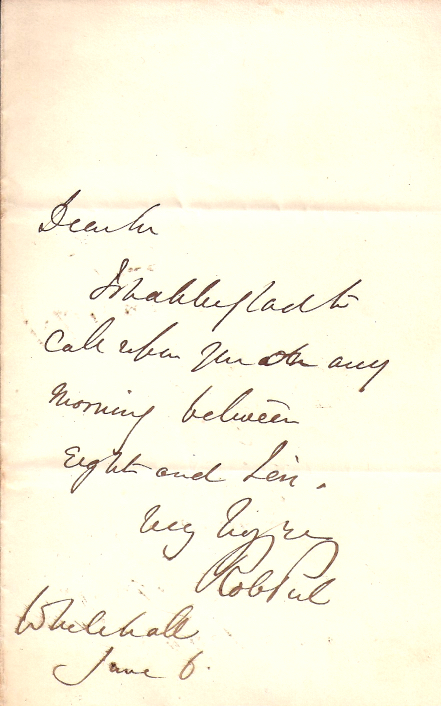 Dear Sir
I shall be glad to
call upon you on any
morning between
Eight and Ten.
Very truly yrs
Rob Peel
Whitehall
June 6.